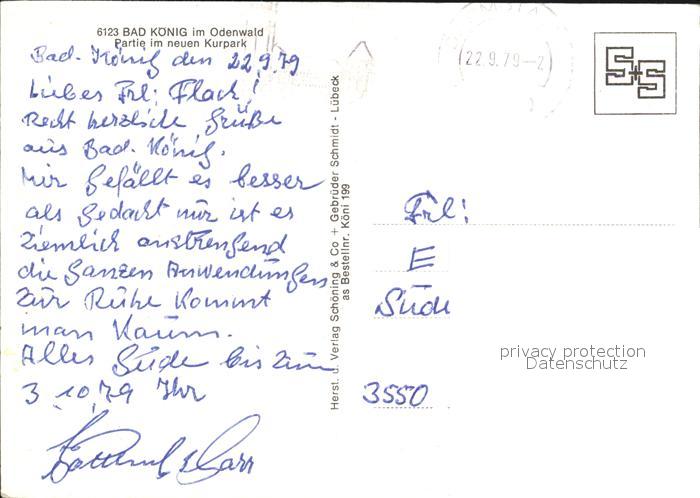 6123 BAD KÖNIG im Odenwald
Partie im neuen Kurpark
Bad-König den 22.9.79
Liebes Frl: Flach!
Recht herzliche Grüße
aus Bad. König.
Mir gefällt es besser
als gedacht nur ist es
ziemlich anstrengend
die ganzen Anwendungen
zur Ruhe kommt
man kaum.
Alles Gude bis zum
3 10.79 Ihr
Herst. u. Verlag Schöning & Co + Gebrüder Schmidt - Lübeck
as Bestellnr. Köni 199
22.9.79-2
S+S
Frl:
E
Süde
3550
privacy protection
Datenschutz